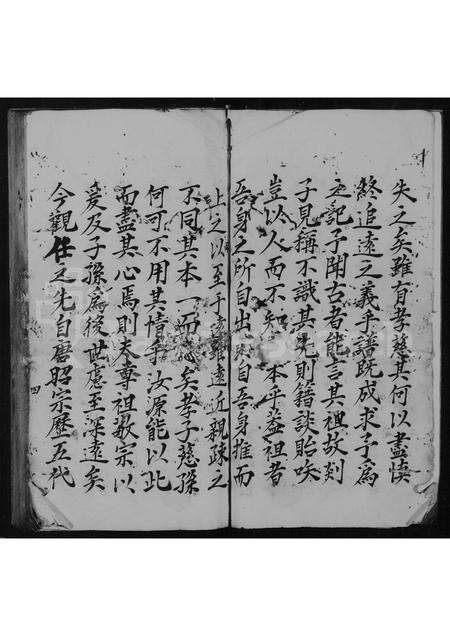 失之矣雖有孝慈其何以盡慎
終追遠之義乎譜既成求予為
之記予聞古者能言其祖故剡
子見稱不識其先則籍談貽唉
豈以人而不知本乎蓋祖者
吾身之所自出自吾身推而
上之以至于遠雖遠近親疎之
不同其本一而矣孝子慈孫
何可不用其情乎汝原能以此
而盡其心焉則夫尊祖敬宗以
爰及子孫為後世慮至深遠矣
今觀任氏先自唐昭宗歷五代
四